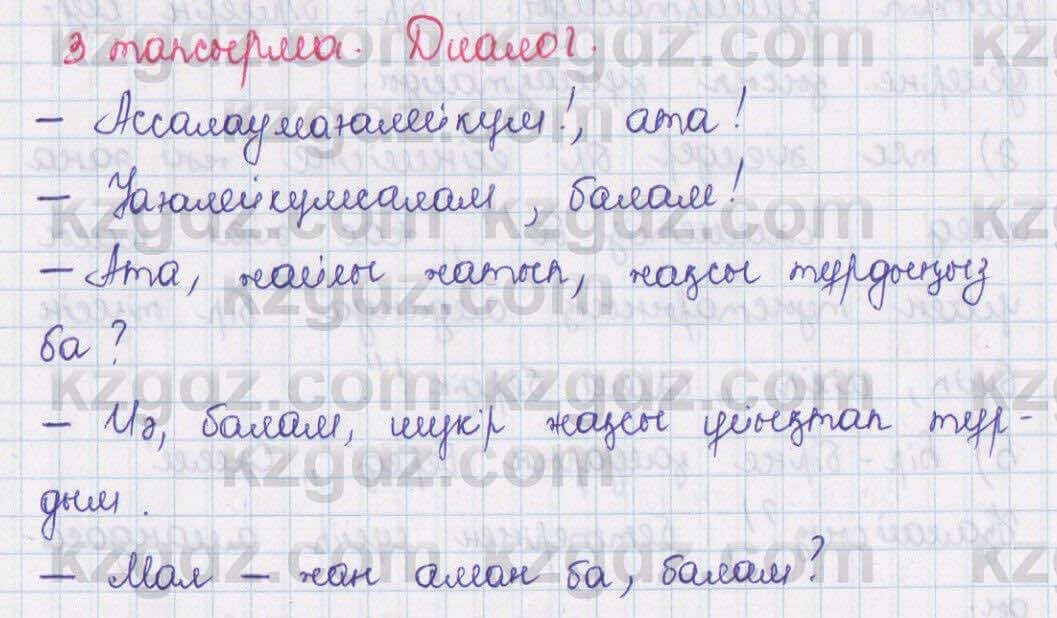 3 тапсырма. Диалог.
– Ассалаумағалейкум!, ата!
– Уағалейкумсалам, балам!
– Ата, жайлы жатып, жақсы тұрдыңыз
ба?
– Иә, балам, шүкір жақсы ұйықтап тұр-
дым.
– Мал – жан аман ба, балам?
kzgdz.com